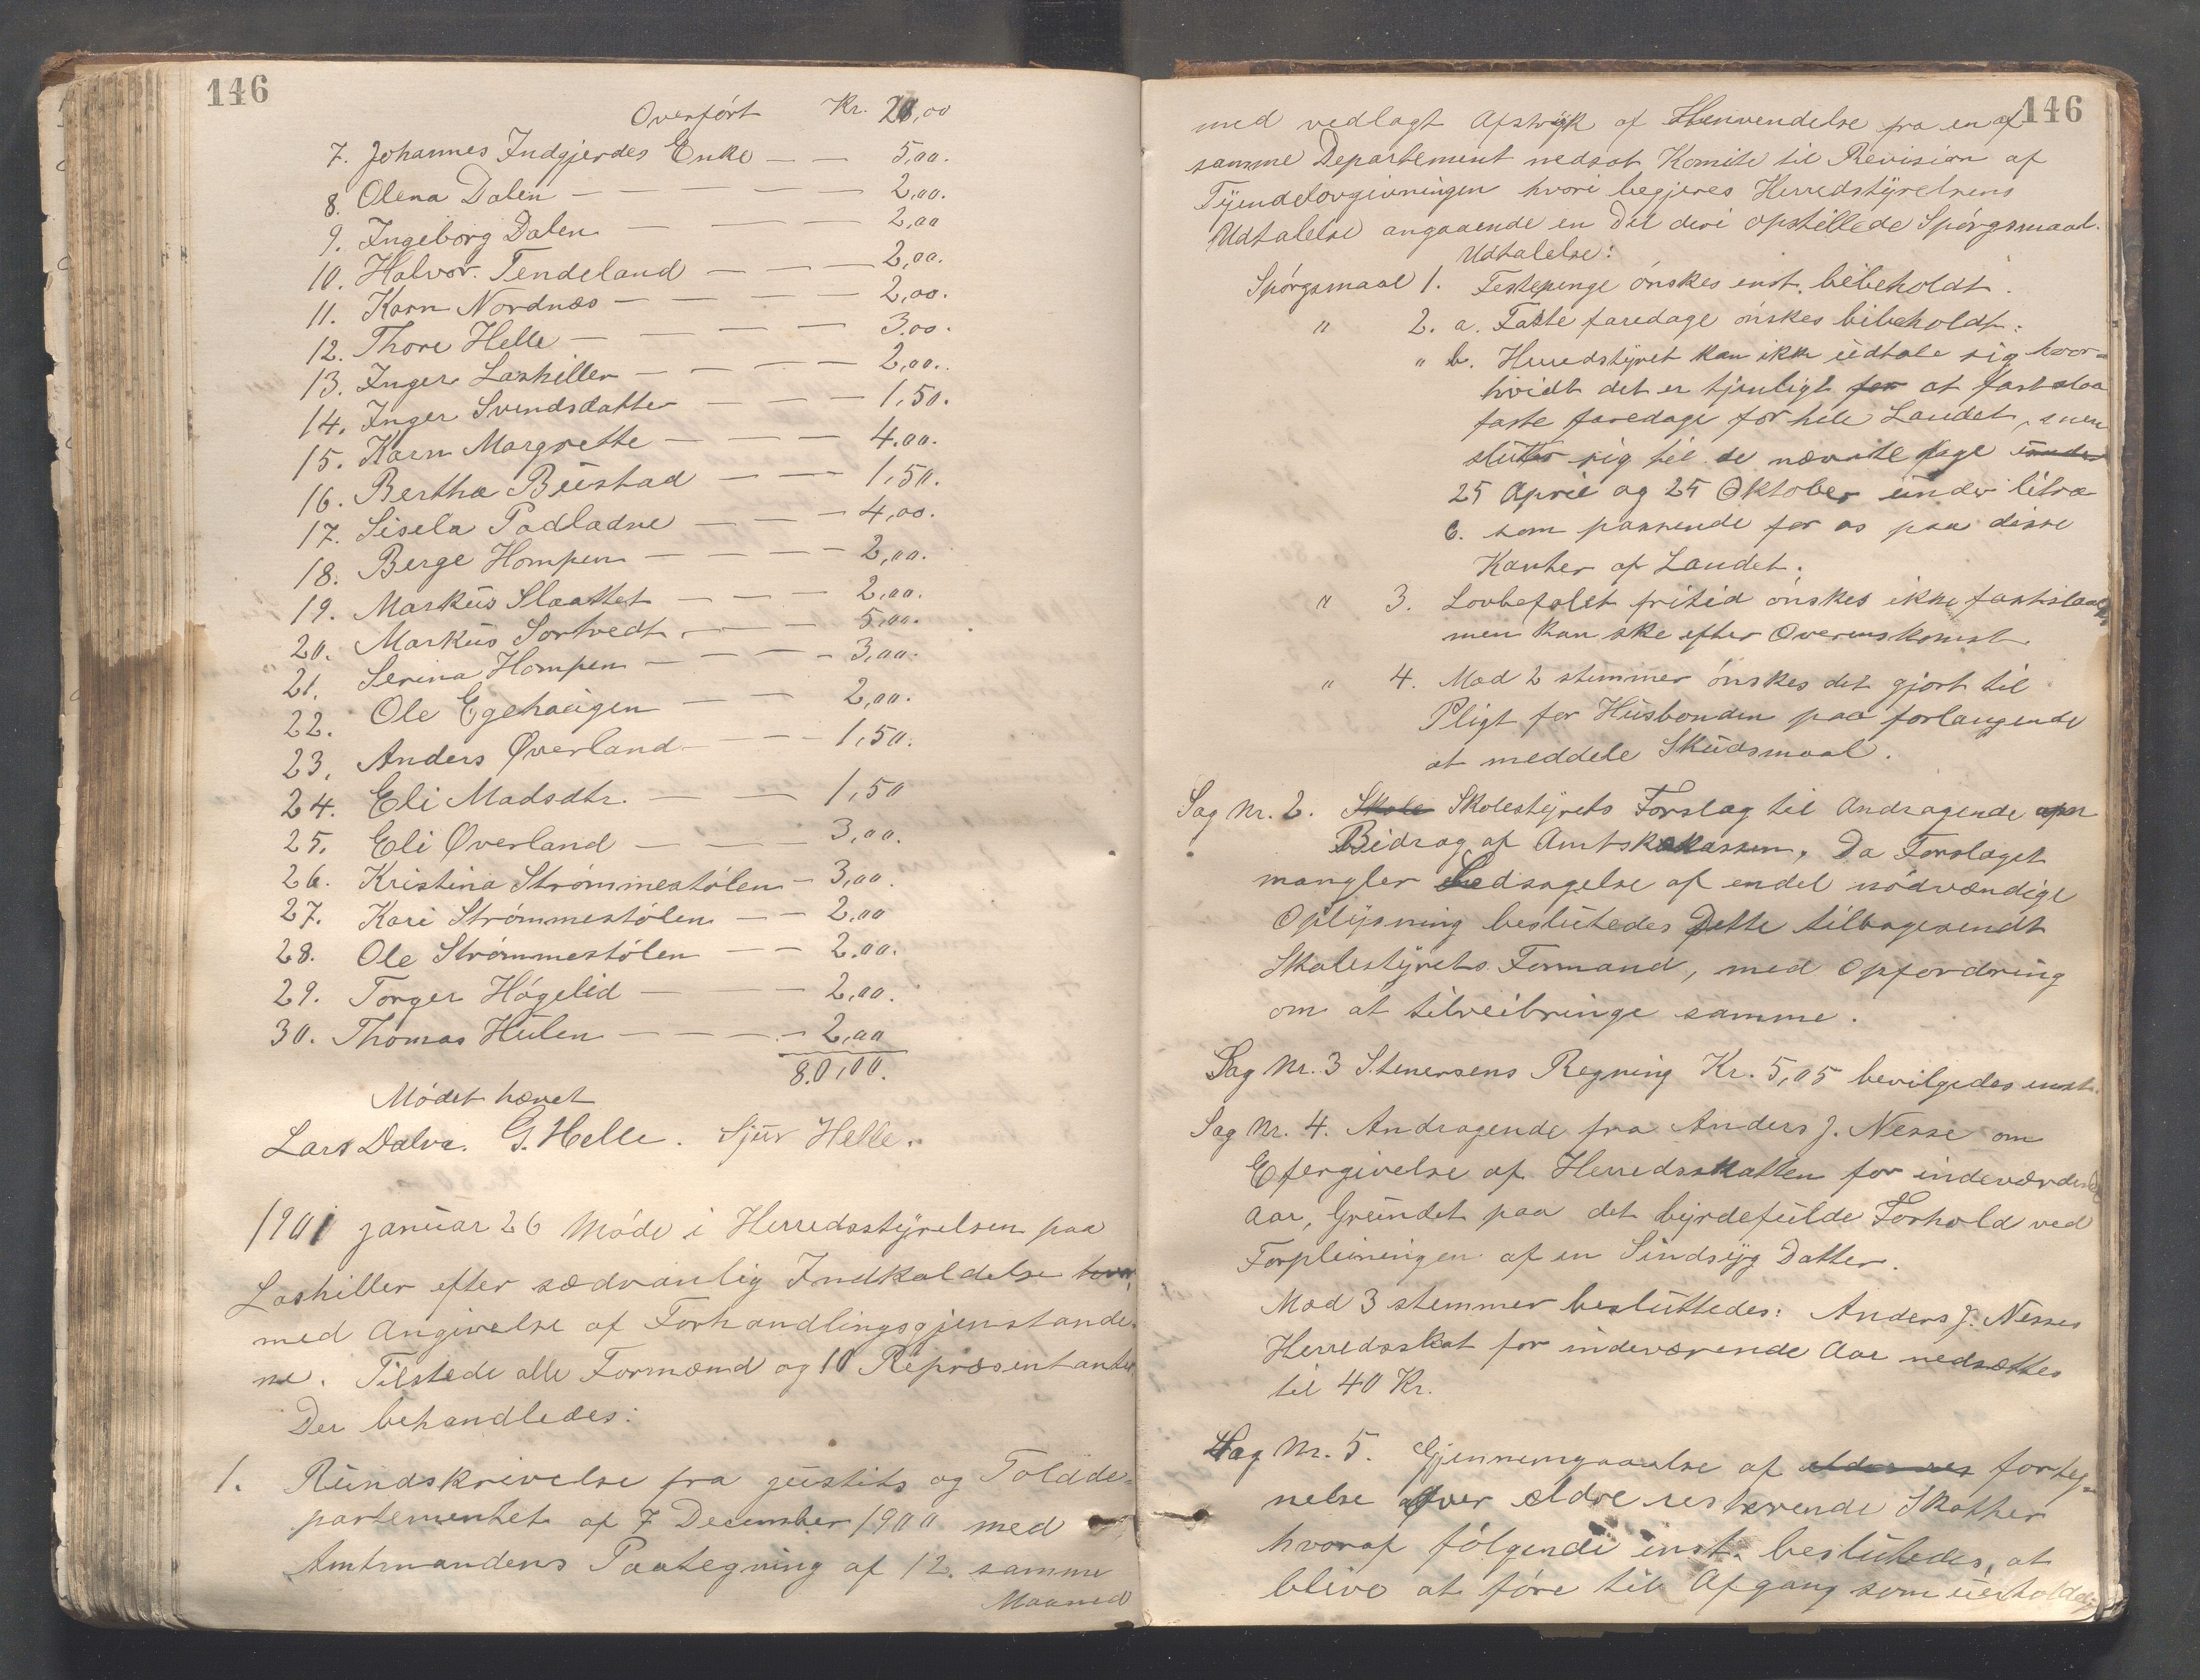 146
Overført Kr. 20,00
7. Johannes Indgjerdes Enke — — 5,00.
8. Olena Dalen — — — — — 2,00.
9. Ingeborg Dalen — — — — 2,00
10. Halvor Tendeland — — — 2,00.
11. Karn Nordnæs — — — — 2,00.
12. Thore Helle — — — — 3.00.
13. Inger Laskillen — — — — 2,00.
14. Inger Svendsdatter — — — 1,50.
15. Karn Margrette — — — 4.00.
16. Bertha Bustad — — — 1,50.
17. Sisela Padladne — — — 4,00.
18. Berge Hompen — — — — 2,00.
19. Markus Slaattet — — — 2,00.
20. Markus Sortvedt — — — 5,00.
21. Serina Hompen — — — — 3,00.
22. Ole Egehaugen — — 2,00.
23. Anders Øverland — — — 1,50.
24. Eli Madsdtr. — — 1,50
25. Eli Øverland — — — 3,00.
26. Kristina Strømmestølen — 3,00.
27. Kari Strømmestølen — — 2,00
28. Ole Strømmestølen — — 2.00.
29. Torger Høgelid — — — 2,00.
30. Thomas Hülen — — — — 2,00
80,00.
Mødet hævet
Lars Dalva. G. Helle. Sjur Helle.
1901 Januar 26 Møde i Herredsstyrelsen paa
Laskillen efter sædvanlig Indkaldelse hvor
med Angivelse af Forhandlingsgjenstande-
ne. Tilstede alle Formænd og 10 Repræsentanter
Der behandledes:
1. Rundskrivelse fra Justits og Toldde-
partementet af 7 December 1900 med
Amtmandens Paategning af 12. samme
Maaned
146
med vedlagt Afstryk af Henvendelse fra en af
samme Departement nedsat Komite til Revision af
Tyendelovgivningen hvori begjæres Herredstyrelsens
Udtalelse angaaende en Del deri opstillede Spørgsmaal.
Udtalelse:
Spørgsmaal 1. Festepenge ønskes enst. bibeholdt.
" 2. a. Faste faredage ønskes bibeholdt.
" b. Herredstyret kan ikke udtale sig hvor-
hvidt det er tjenligt for at fastslaa
faste faredage for hele Landet, men
slutter sig til de nævnte Dage under
25 April og 25 Oktober under litra
C. som passende for os paa disse
Kanter af Landet.
" 3. Lovbefalet fritid ønskes ikke fastslaaet
men kan ske efter Overenskomst.
" 4. Mod 2 stemmer ønskes det gjort til
Pligt for Husbonden paa forlangende
at meddele Skudsmaal.
Sag Nr. 2. Skole Skolestyrets Forslag til Andragende om
Bidrag af Amtskolekassen. Da Forslaget
mangler Ledsagelse af endel nødvændige
Oplysning beslutedes Dette tilbagesendt
Skolestyrets Formand, med Opfordring
om at tilveibringe samme.
Sag Nr. 3 Stenersens Regning Kr. 5,05 bevilgedes enst.
Sag Nr. 4. Andragende fra Anders J. Nesse om
Efergivelse af Herredsskatten for indeværende
Aar, Grundet paa det byrdefulde Forhold ved
Forpleiningen af en Sindsyg Datter.
Mod 3 stemmer besluttedes: Anders J. Nesses
Herredsskat for indeværende Aar nedsættes
til 40 Kr.
Sag Nr. 5. Gjennemgaaelse af forteg-
nelse over eldre resterende Skatter
hvoraf følgende enst. beslutedes, at
blive at føre til Afgang som uerholdelig